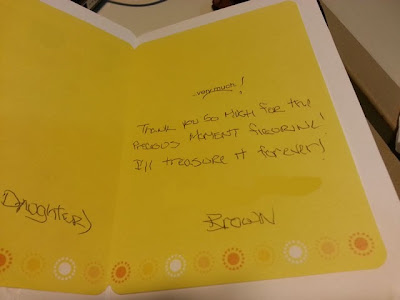 Daughter)
THANK YOU SO MUCH FOR THE
PRECIOUS MOMENT FIGURINE!
I'll treasure it forever!
BROWN